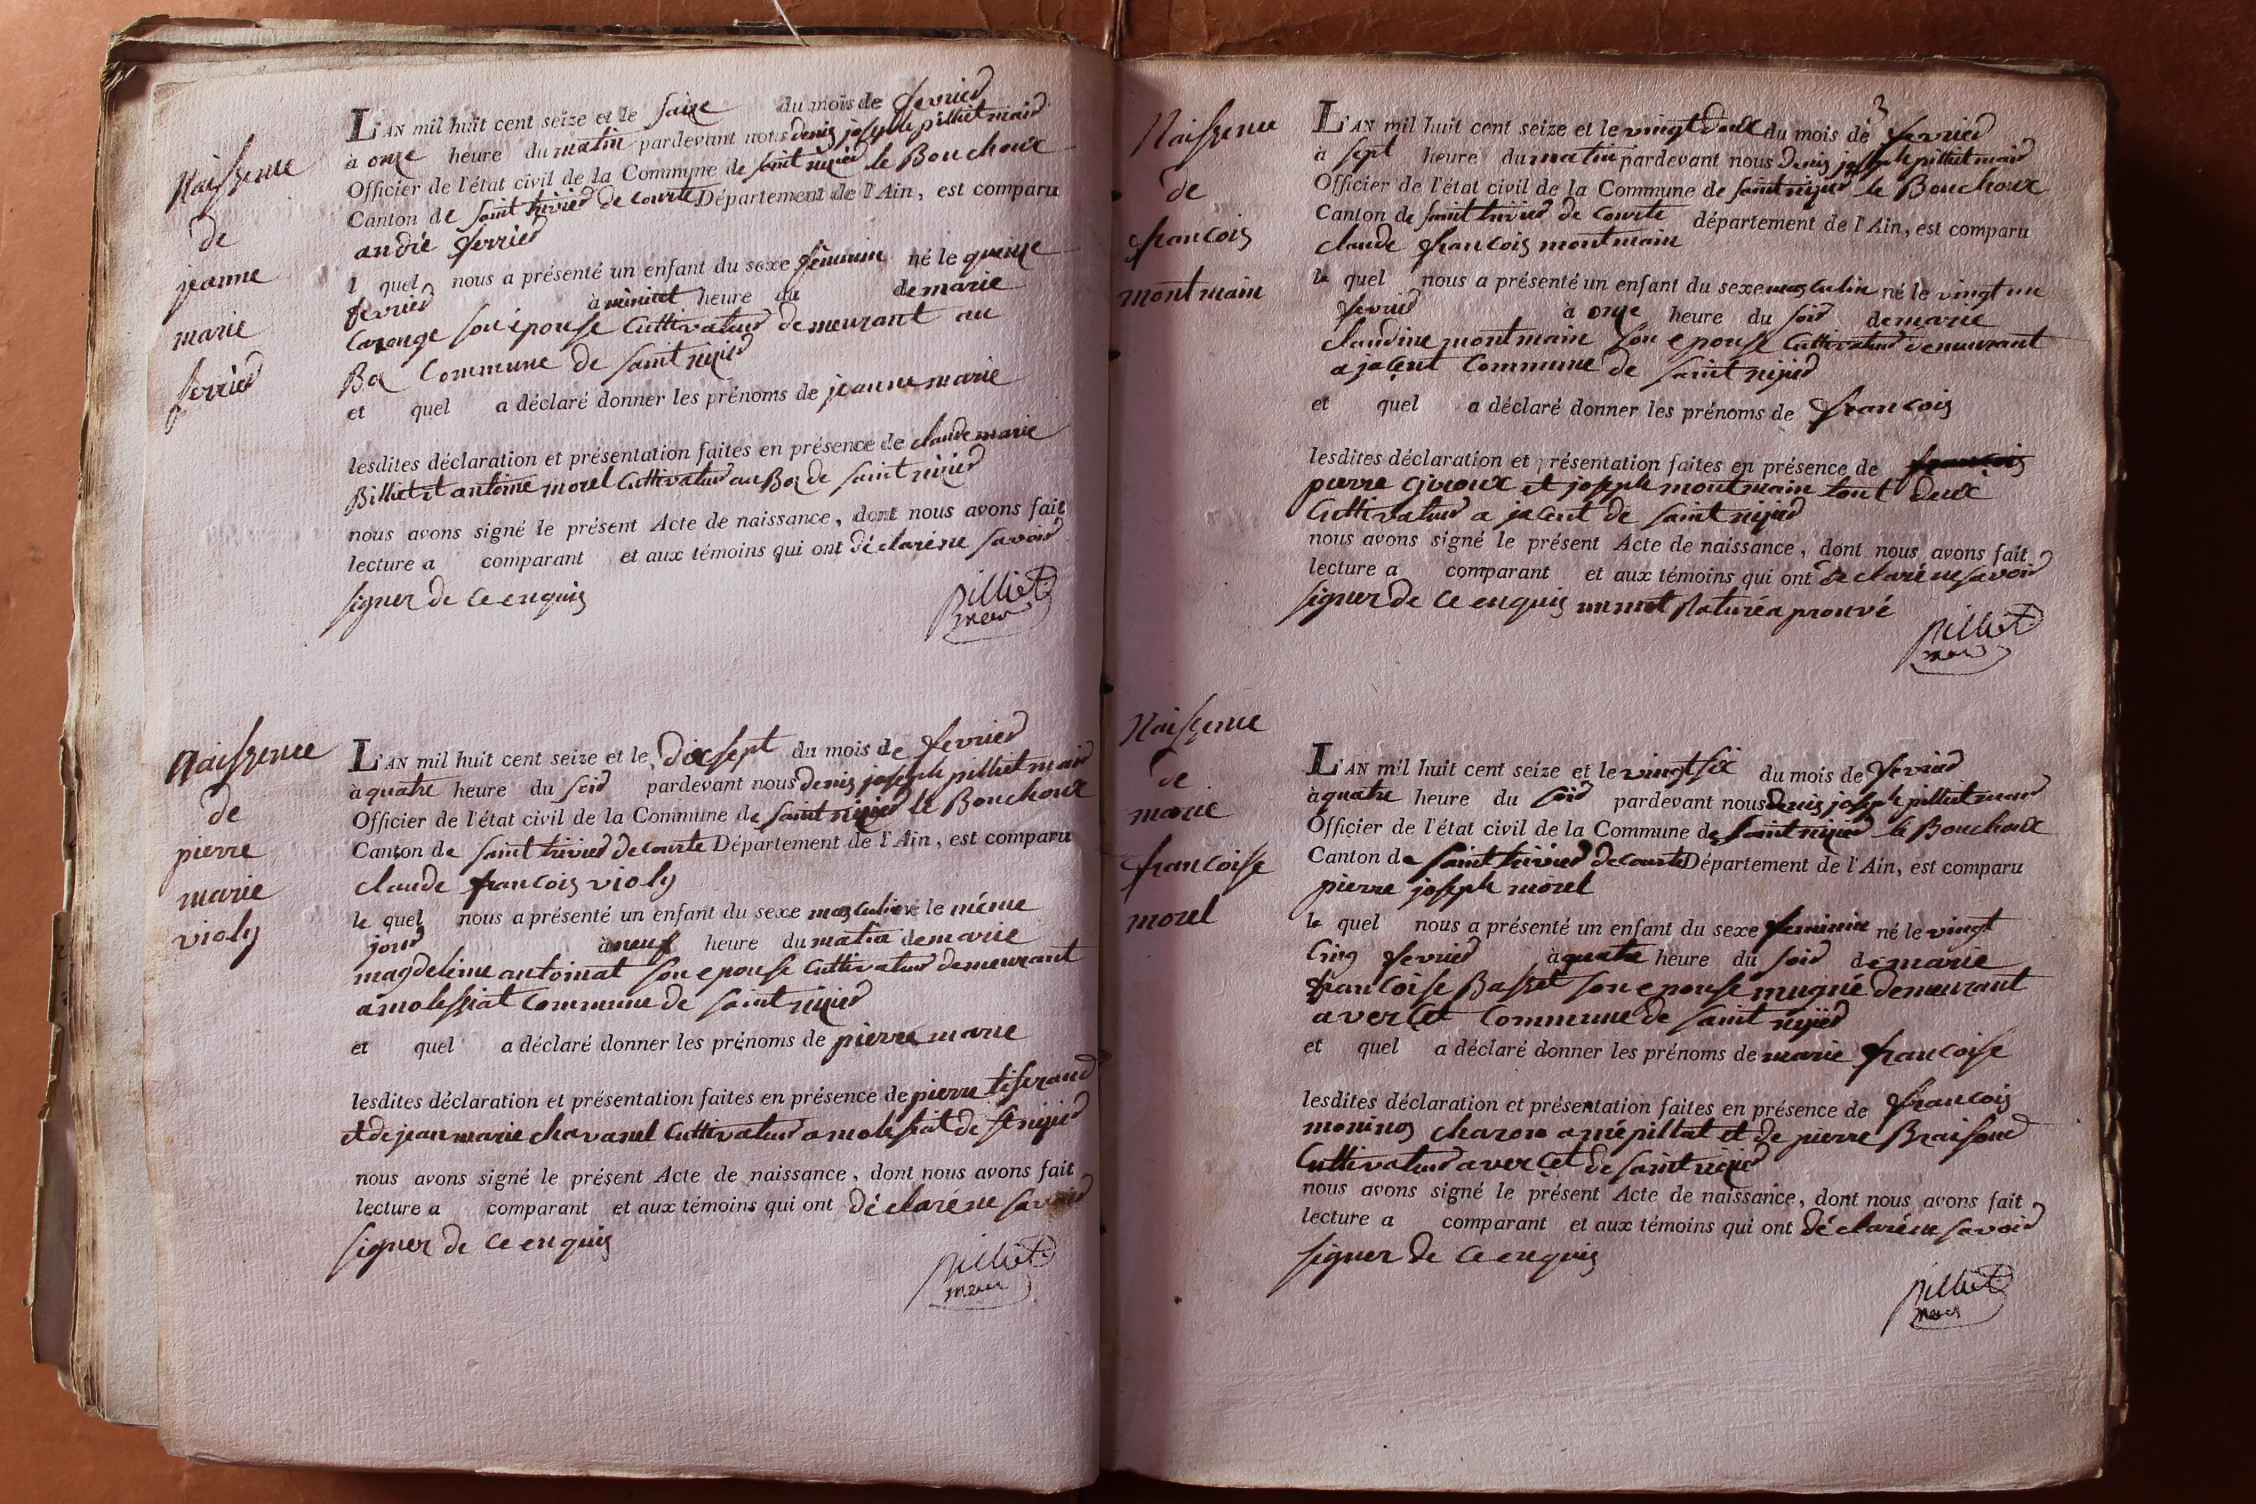 Naissence
de
jeanne
marie
ferrier
L'AN mil huit cent seize et le saize du mois de fevrier
à onze heure du matin pardevant nous denis joseph pilliet mair
Officier de l'état civil de la Commune de saint nizier le Bouchoux
Canton de saint trivier de courte Département de l'Ain, est comparu
andré ferrier
l quel nous a présenté un enfant du sexe féminim né le quinze
fevrier à miniut heure du de marie
son épouse Cultivateur demeurant au
Commune de saint nizier
et quel a déclaré donner les prénoms de jeanne marie
lesdites déclaration et présentation faites en présence de claude marie
Billiet et antoine morel Cultivateur au de saint nizier
nous avons signé le présent Acte de naissance, dont nous avons fait
lecture a comparant et aux témoins qui ont déclaré ne savoir
signer de ce enquis
pilliet
mair
Naissence
de
pierre
marie
violy
L'AN mil huit cent seize et le dixsept du mois de fevrier
à quatre heure du soir pardevant nous denis joseph pilliet mair
Officier de l'état civil de la Commune de saint nizier le Bouchoux
Canton de saint trivier de courte Département de l'Ain, est comparu
claude francois violy
le quel nous a présenté un enfant du sexe masculin né le méme
jour à neuf heure du matin de marie
magdeleine antoinat son epouse Cultivateur demeurant
a molessiat Commune de saint nizier
et quel a déclaré donner les prénoms de pierre marie
lesdites déclaration et présentation faites en présence de pierre tiserand
et de jean marie chavanel Cultivateur a molessiat de st nizier
nous avons signé le présent Acte de naissance, dont nous avons fait
lecture a comparant et aux témoins qui ont déclaré ne savoir
signer de ce enquis
pilliet
mair
Naissence
de
francois
montmain
3
L'AN mil huit cent seize et le vingt deux du mois de fevrier
à sept heure du matin pardevant nous denis joseph pilliet mair
Officier de l'état civil de la Commune de saint nizier le Bouchoux
Canton de saint trivier de courte département de l'Ain, est comparu
claude francois montmain
le quel nous a présenté un enfant du sexe masculin né le vingt un
fevrier à onze heure du soir de marie
claudine montmain son epouse Cultivateur demeurant
a jacent Commune de saint nizier
et quel a déclaré donner les prénoms de francois
lesdites déclaration et présentation faites en présence de francois
pierre giroux et joseph montmain tout deux
Cultivateur a jacent de saint nizier
nous avons signé le présent Acte de naissance, dont nous avons fait
lecture a comparant et aux témoins qui ont declaré ne savoir
signer de ce enquis un mot raturé aprouvé
pilliet
mair
Naissence
de
marie
francoise
morel
L'AN mil huit cent seize et le vingt six du mois de fevrier
à quatre heure du soir pardevant nous denis joseph pilliet mair
Officier de l'état civil de la Commune de saint nizier le Bouchoux
Canton de saint trivier de courte Département de l'Ain, est comparu
pierre joseph morel
le quel nous a présenté un enfant du sexe feminin né le vingt
cinq fevrier à quatre heure du soir de marie
francoise Basset son epouse mugnié demeurant
a vercet Commune de saint nizier
et quel a déclaré donner les prénoms de marie francoise
lesdites déclaration et présentation faites en présence de francois
charon a mépillat et de pierre
Cultivateur a vercet de saint nizier
nous avons signé le présent Acte de naissance, dont nous avons fait
lecture a comparant et aux témoins qui ont déclaré ne savoir
signer de ce enquis
pilliet
mair